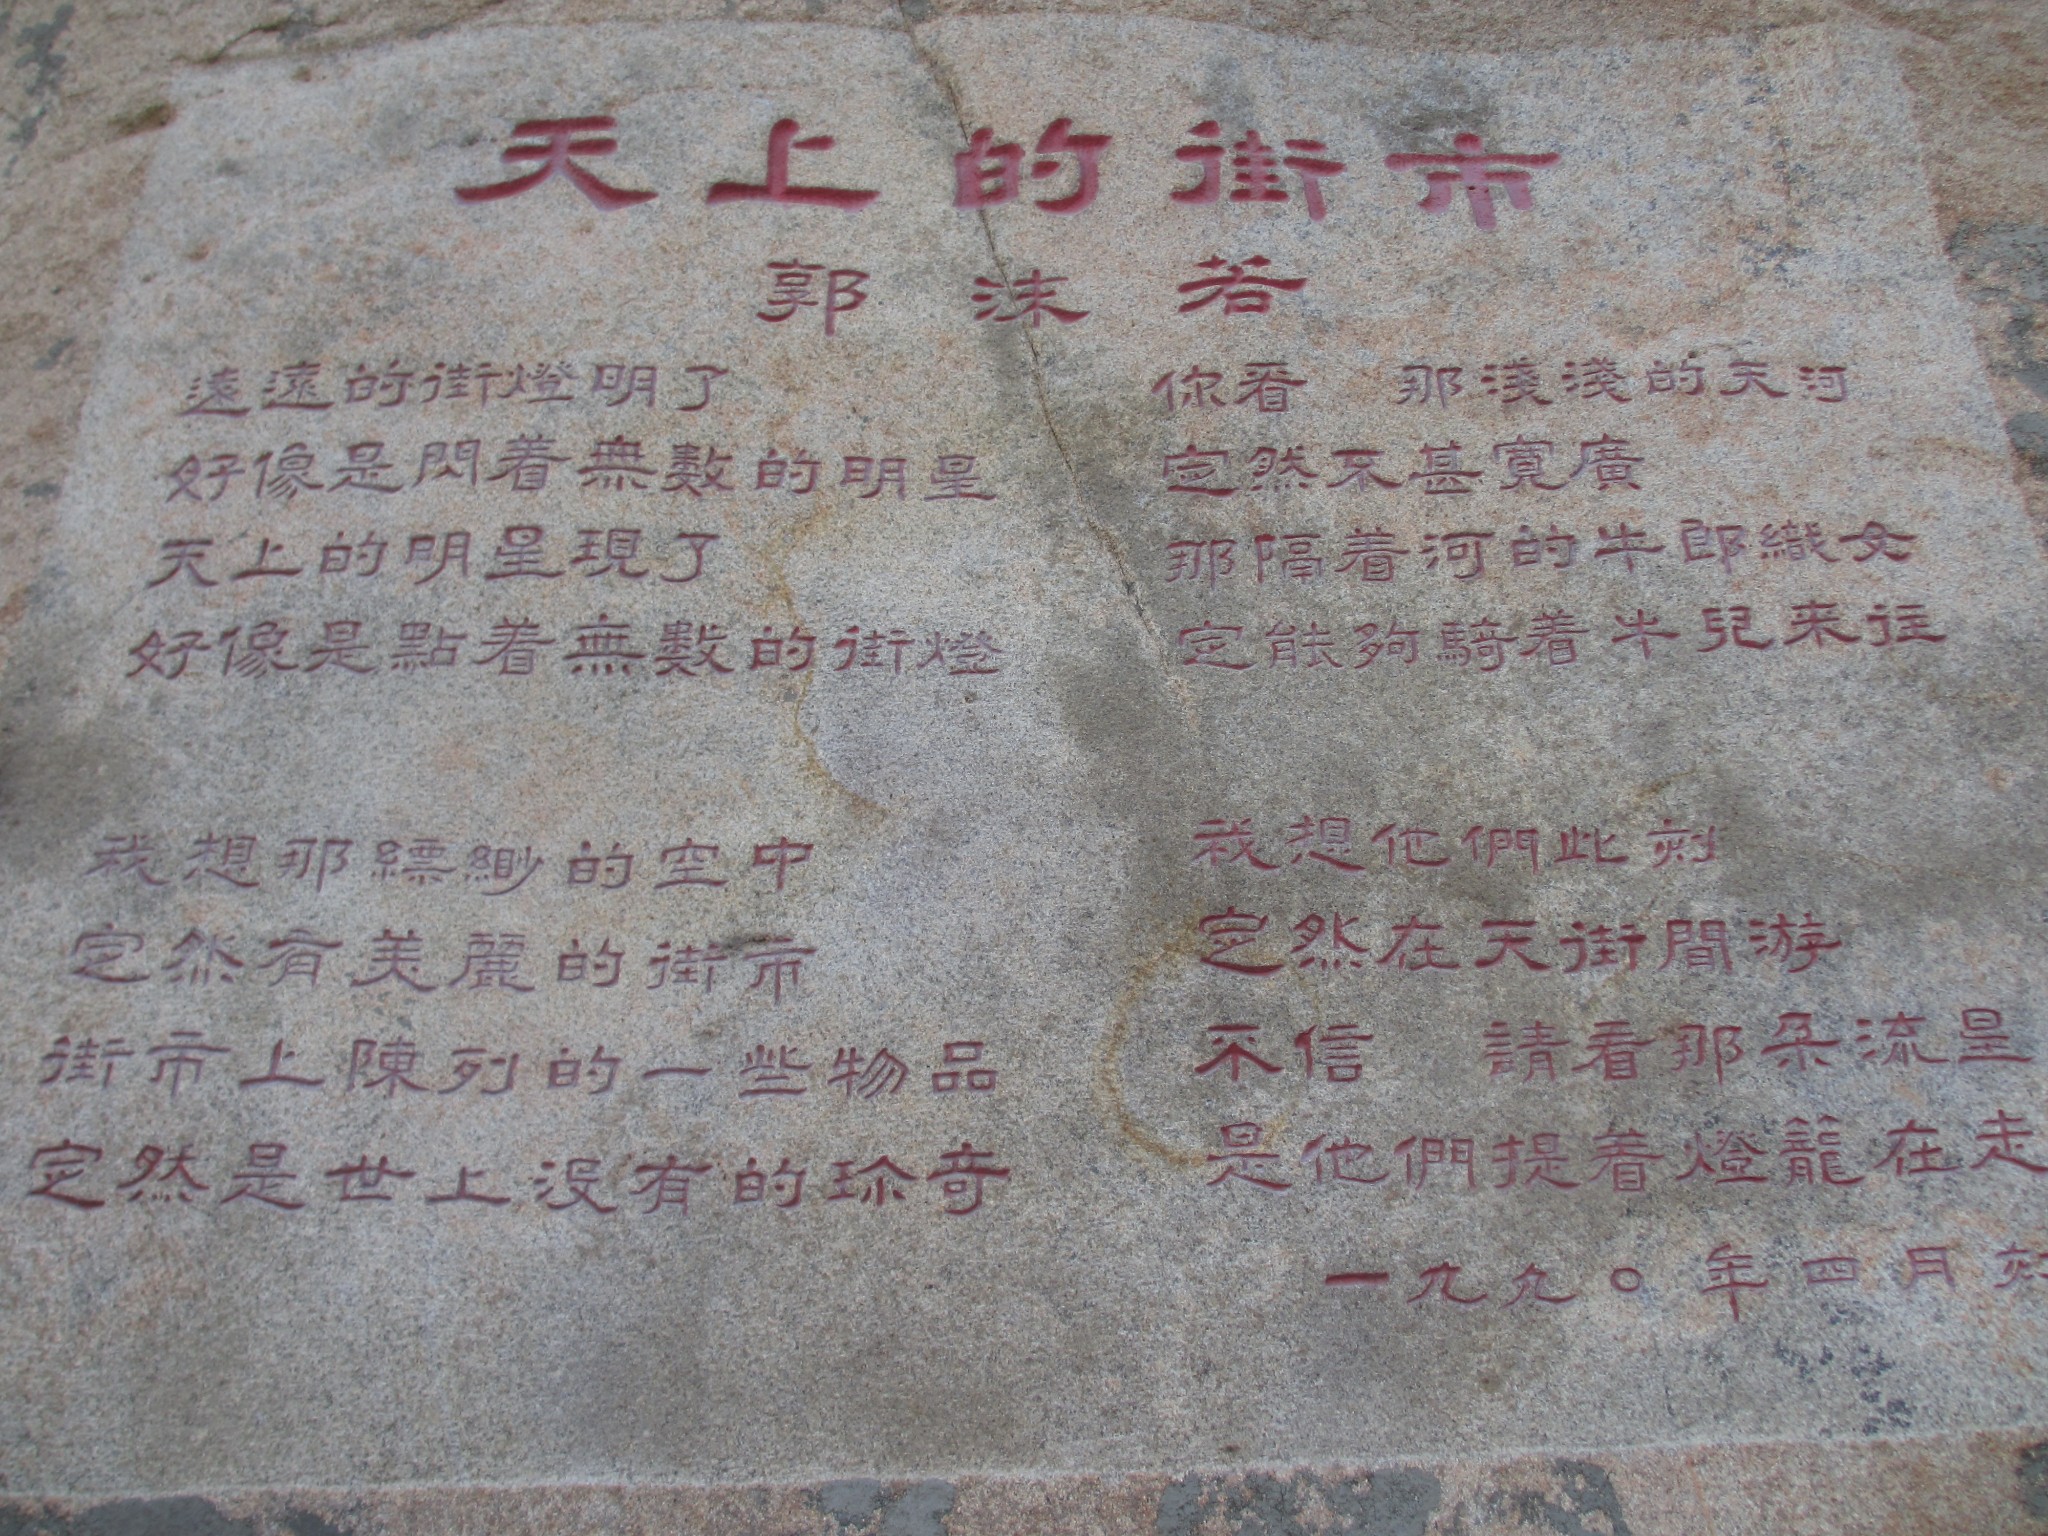 天上的街市
郭沫若
遠遠的街燈明了
好像是閃着無數的明星
天上的明星現了
好像是點着無數的街燈
我想那縹緲的空中
定然有美麗的街市
街市上陳列的一些物品
定然是世上沒有的珍奇
你看　那淺淺的天河
定然不甚寬廣
那隔着河的牛郎織女
定能夠騎着牛兒来往
我想他們此刻
定然在天街閒游
不信　請看那朵流星
是他們提着燈籠在走
一九九〇年四月刻